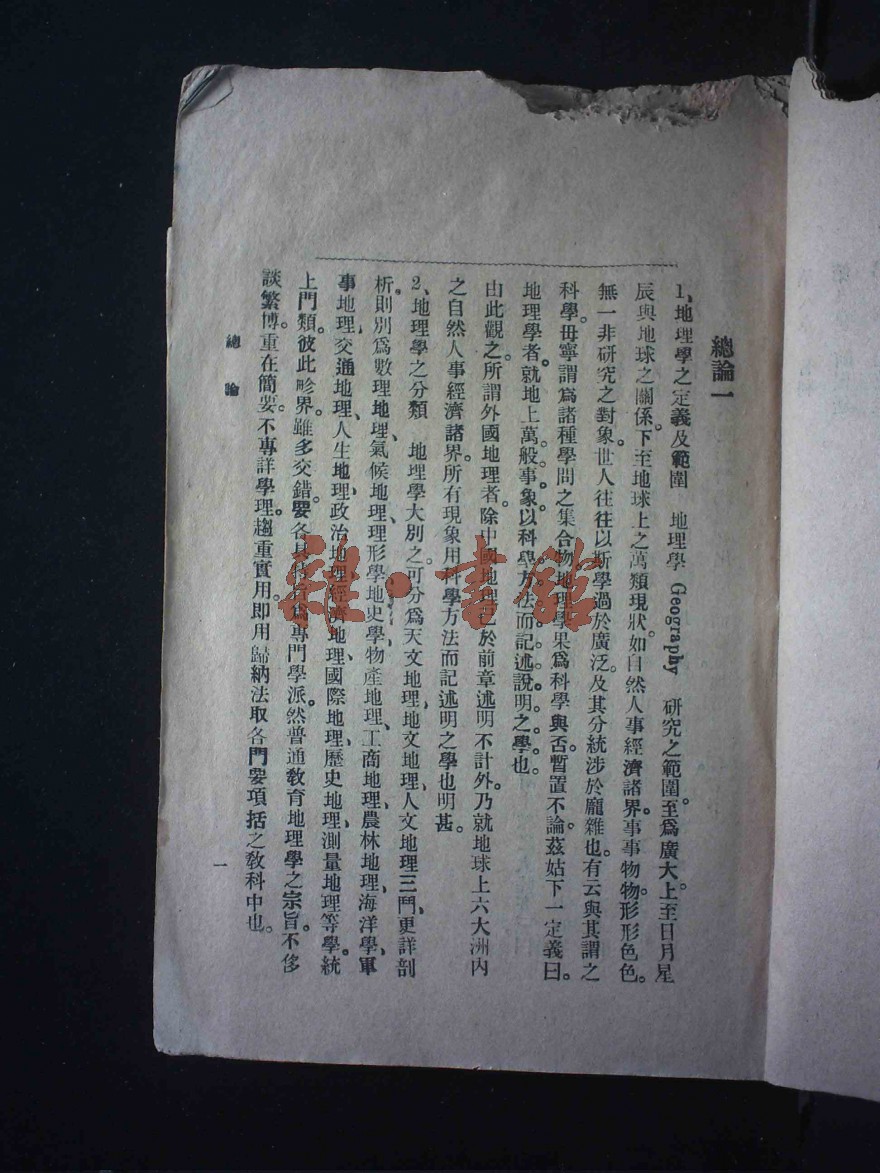 總論一
1、地理學之定義及範圍　地理學 Geography 研究之範圍。至爲廣大。上至日月星
辰與地球之關係。下至地球上之萬類現狀。如自然人事經濟諸界。事事物物。形形色色。
無一非研究之對象。世人往往以斯學過於廣泛。及其分統涉於龐雜也。有云與其謂之
科學。毋寧謂爲諸種學問之集合物。地理學果爲科學與否。暫置不論。茲姑下一定義曰。
地理學者。就地上萬般事象。以科學方法而記述說明之學也。
由此觀之。所謂外國地理者。除中國地理已於前章述明不計外。乃就地球上六大洲內
之自然人事經濟諸界。所有現象用科學方法而記述明之學也明甚。
2、地理學之分類　地理學大別之。可分爲天文地理、地文地理、人文地理三門、更詳剖
析。則別爲數理地理、氣候地理、地形學、地史學、物產地理、工商地理、農林地理、海洋學、軍
事地理、交通地理、人生地理、政治地理、經濟地理、國際地理、歷史地理、測量地理等學。統
上門類。彼此畛界。雖多交錯。要各具 爲專門學派。然普通敎育地理學之宗旨。不侈
談繁博。重在簡要。不專詳學理。趨重實用。即用歸納法取各門要項括之敎科中也。
總論
一
雜·書館